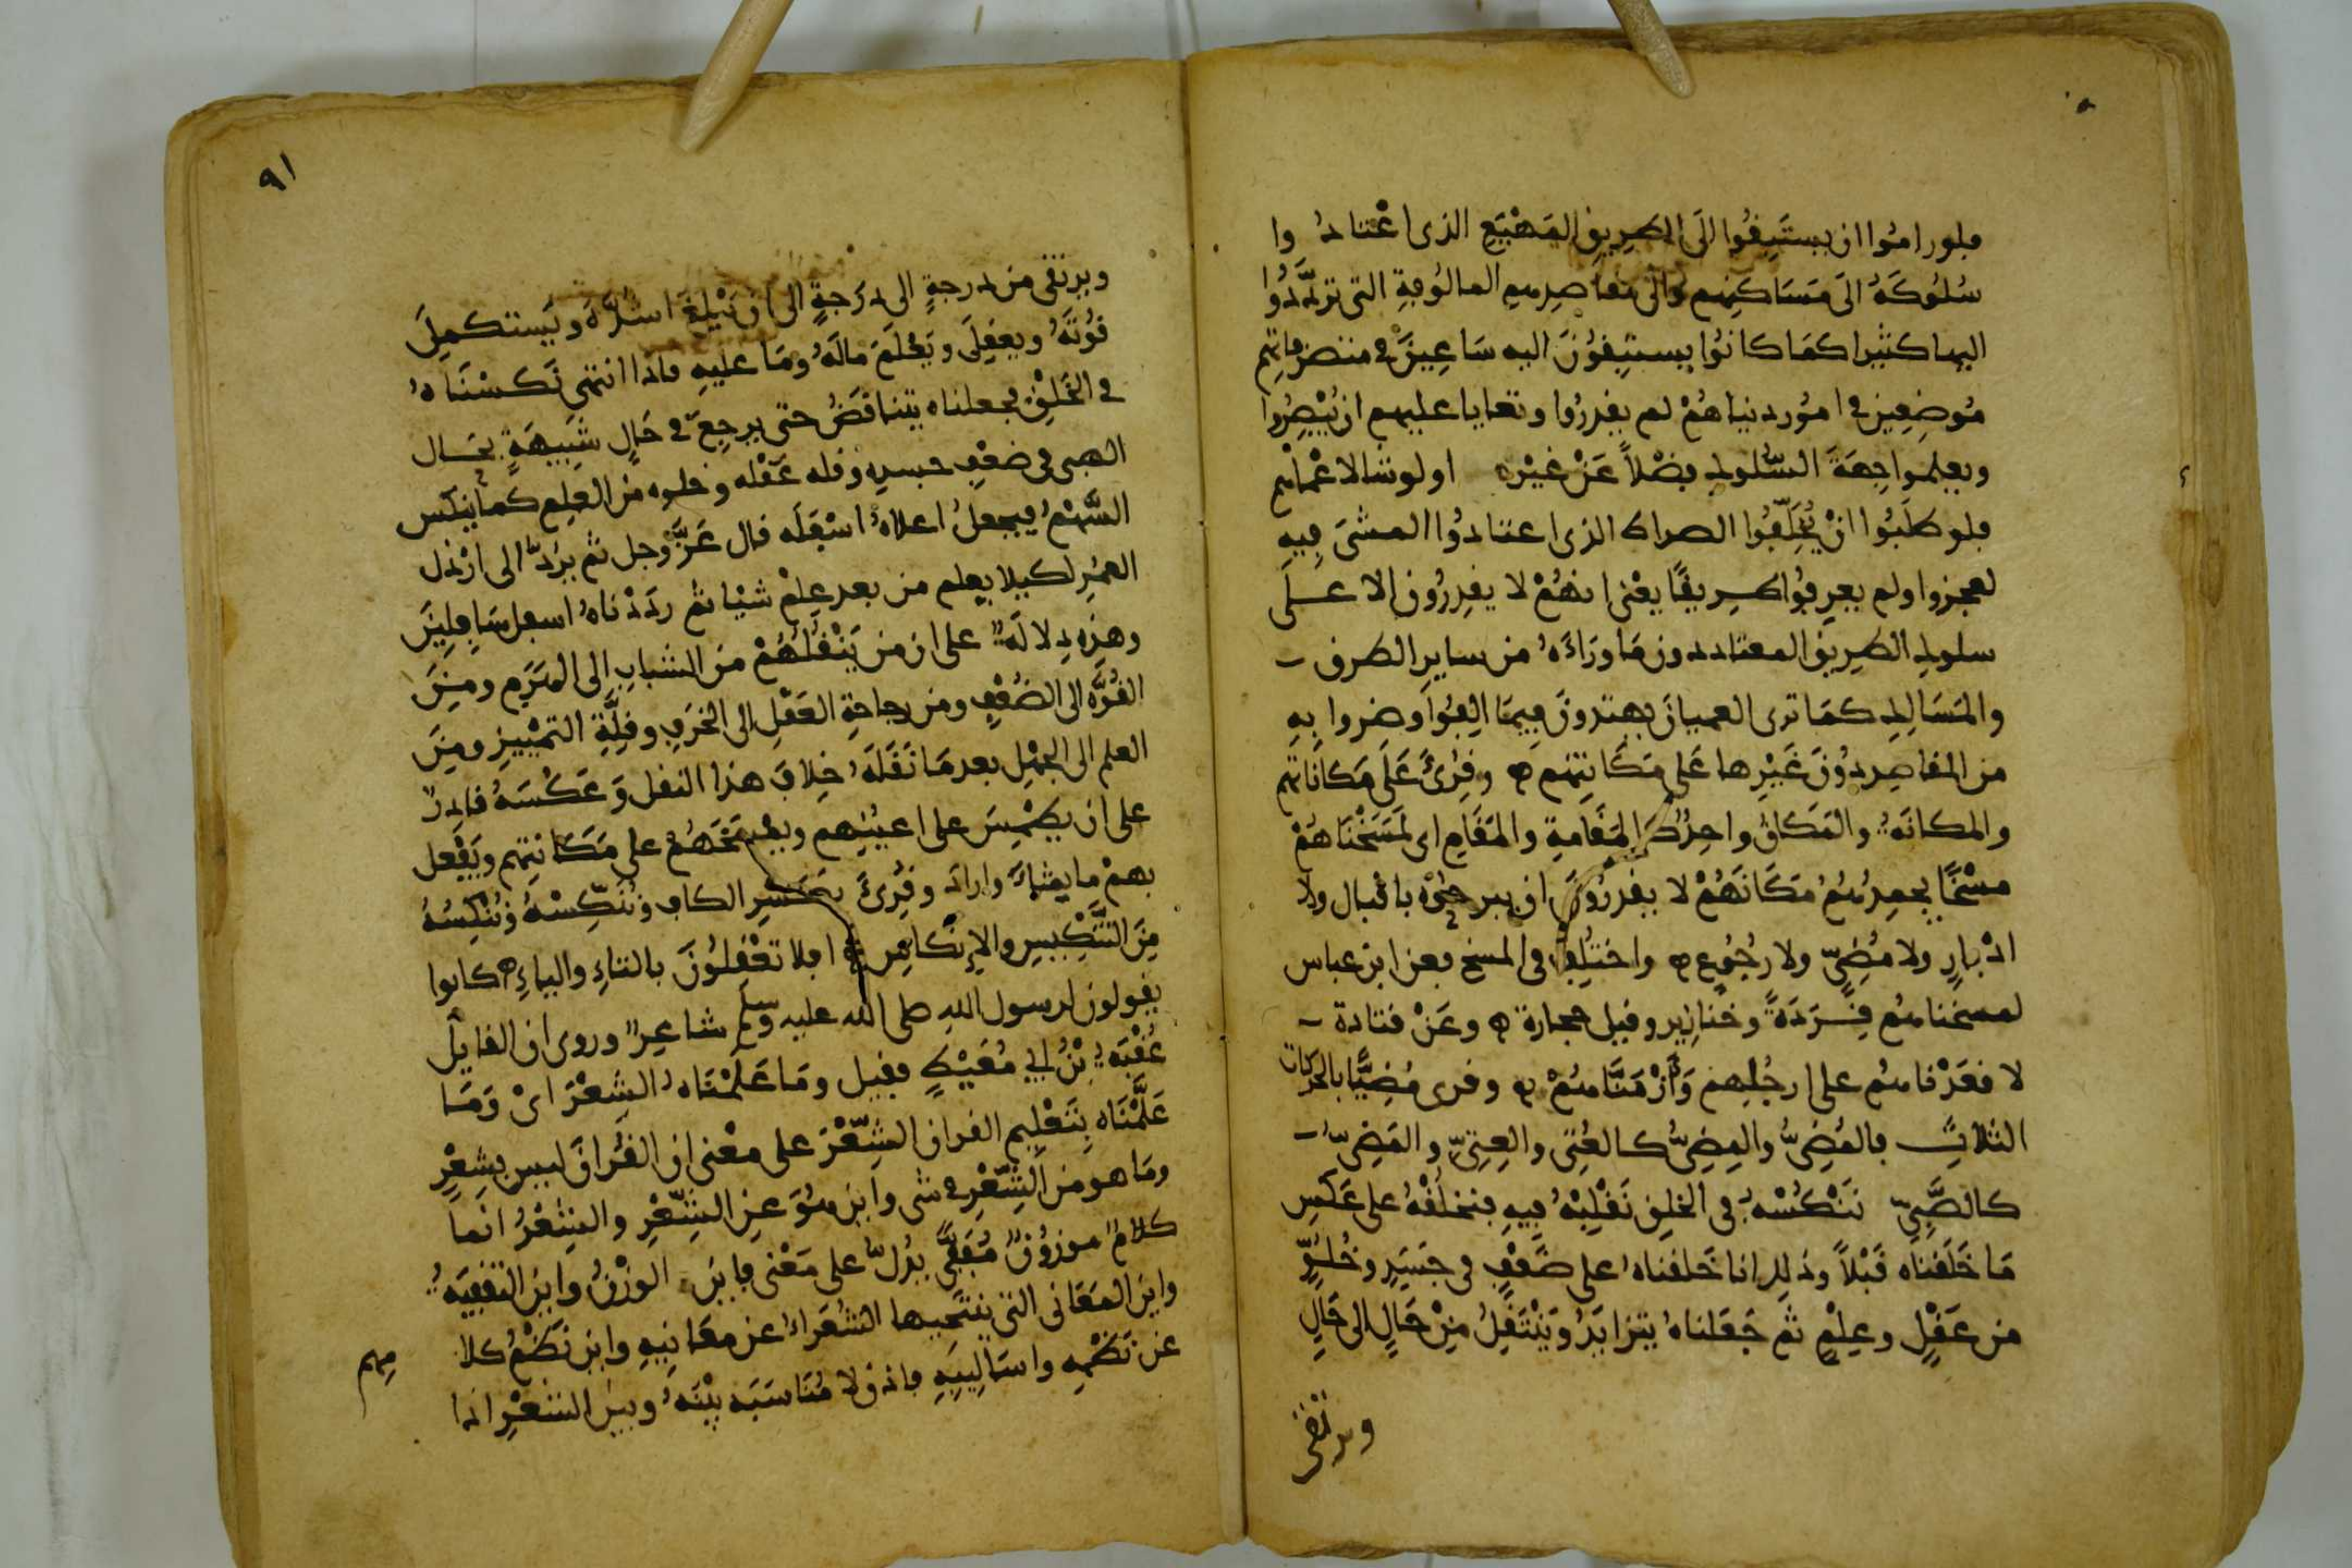 فلو راموا ان يستَبِقُوا الَى الطرِيقِ المَهْيَعِ الذى اعْتادُ وا
سُلوكَهُ الَى مَسَاكِنِهِم والَى مقاصِدِهِمِ المالُوفةِ التى تَرَدَّدُوا
اليها كثيرا كمَا كانُوا يستبِقُونَ اليه سَاعِينَ فى متصرفاتِهِم
مُوضِعِين فى امُورِ دنياهُمْ لم يقدرُوا وتعايا عليهم ان يُبْصِرُوا
ويعلموا جِهَةَ السُّلوكِ فضْلاً عَنْ غيْره او لو شا لاعْماهُم
فلو طلَبُوا انْ يُخَلِّفُوا الصراط الذى اعتادُوا المشىَ فيهِ
لعجزوا ولم يعرِفُوا طرِيقًا يعْنى انهُمْ لا يقدِرُون الا على
سلوكِ الطرِيق المعتاد دون مَا ورَاءَهُ من سايرِ الطرق
والمَسَالِكِ كمَا ترى العميانَ يهتدونَ فيمَا الِفُوا وضروا بِهِ
من المقاصِد دُونَ غَيْرِها عَلى مَكَانتِهم وقُرِئَ عَلَى مَكَانَاتِهم
والمكانَةُ والمَكانُ واحِدٌ كالمَقَامةِ والمَقَامِ اى لمَسَخْنَاهُمْ
مسْخًا يجمِدُهُمُ مَكَانَهُمْ لا يقدرُونَ ان يبرحُوْه باقبال ولا
ادْبارٍ ولا مُضِىّ ولا رُجُوعٍ واختُلِفَ فى المسخ فعن ابن عباس
لمسخناهُم قِرَدَةً وخنازِير وقيل حجارة وعَنْ قتادة
لاقعَدْناهُم على ارجُلِهم وَأزْمَنَّاهُمْ وقرى مُضِيًّا بالحركات
الثلاثِ فالمُضِىُّ والمِضِىُّ كالعُتِىّ والعِتِىّ والمَضِىُّ
كالصَّبِىِّ نَنْكُسْهُ فى الخلِق نَقْلِبْهُ فِيهِ فنخلُقْهُ على عَكسِ
مَا خَلَقْناه قَبْلاً وذلِك انا خَلقناهُ على ضَعْفٍ فى جَسَدٍ وخُلُوٍّ
من عَقْلٍ وعِلْمٍ ثم جَعَلناهُ يتزايَدُ وَيَنْتَقِلُ مِنْ حَالٍ الى حَالٍ
ويرتقى
٩١
ويرتقى من درجةٍ الى دَرَجةٍ الى ان يَبْلغَ اشُدَّهُ ويَستكمِلَ
قُوتَهُ ويعقِلَ ويَعْلَمَ مالَهُ ومَا عليهِ فاذا انتهى نَكسْنَاهُ
فى الخَلِقْ فجعلناه يتناقَصُ حتى يرجِعَ فى حَالٍ شَبِيهَةٍ بحَال
الصبى فى ضعْفِ جسدِه وقله عَقْله وخلوه من العِلم كما يُنكَس
السَّهْمُ فيجعلُ اعلاهُ اسْفَلَه قال عَزَّ وجل ثم يرَدُّ الى ارْذل
العمُرِ لكيلا يعلم من بعد عِلْم شيْا ثم ردَدْناهُ اسفل سَافِلِينَ
وهذِهِ دِلالَةٌ على ان من يَنْقُلُهُمْ منَ الشبابِ الى الهَرَمِ ومِنَ
القُوَّه الى الضُعْفِ ومن رجاحةِ العَقْلِ الى الخرَفِ وقِلَّةِ التمْييزِ ومِنَ
العلم الى الجهْلِ بعد مَا نَقَلَهُ خِلافَ هذا النقل وَعَكْسَهُ قادِرٌ
على ان يطْمِسَ على اعيُنِهِم ويمْسَخَهُمْ على مَكَانتِهم ويَفْعل
بهمْ ما يشَاءُ وارادَ وقُرِئَ بكَسْرِ الكاف ونُنَكِّسْهُ ونُنْكِسُهُ
مِنَ التَّنكِيسِ والاِنْكاسِ افلا تعْقِلُونَ بالتاءِ والياءِ كانوا
يقولون لرسول اللهِ صلى الله عليه وسلم شاعِرٌ وروى ان القايل
عُقْبَةُ بْنُ ابى مُعَيْطٍ فقيل ومَا عَلَّمْنَاهُ الشِعْرَ اىْ وَمَا
عَلَّمْنَاه بِتَعْلِيم القران الشِّعْرَ على معْنى ان القُرانَ ليس بِشِعْرٍ
ومَا هو من الشِّعْرِ فى شى واَين هُوَ عنِ الشِّعْرِ والشِعْرُ انما
كلامٌ موزُونٌ مُقَفًّى يدُلُّ على مَعْنى فاين الوزْنُ واين التقفِيَهُ
واين المَعَانى التى ينتَحِيها الشُعَراءُ عن معَانِيهِ واين نَظْمُ كلا
عن نَظْمِهِ واسَالِيبِهِ فاذنْ لا مُنَاسَبَه بيْنَهُ وبينَ الشعْرِ اذا
مِهِم